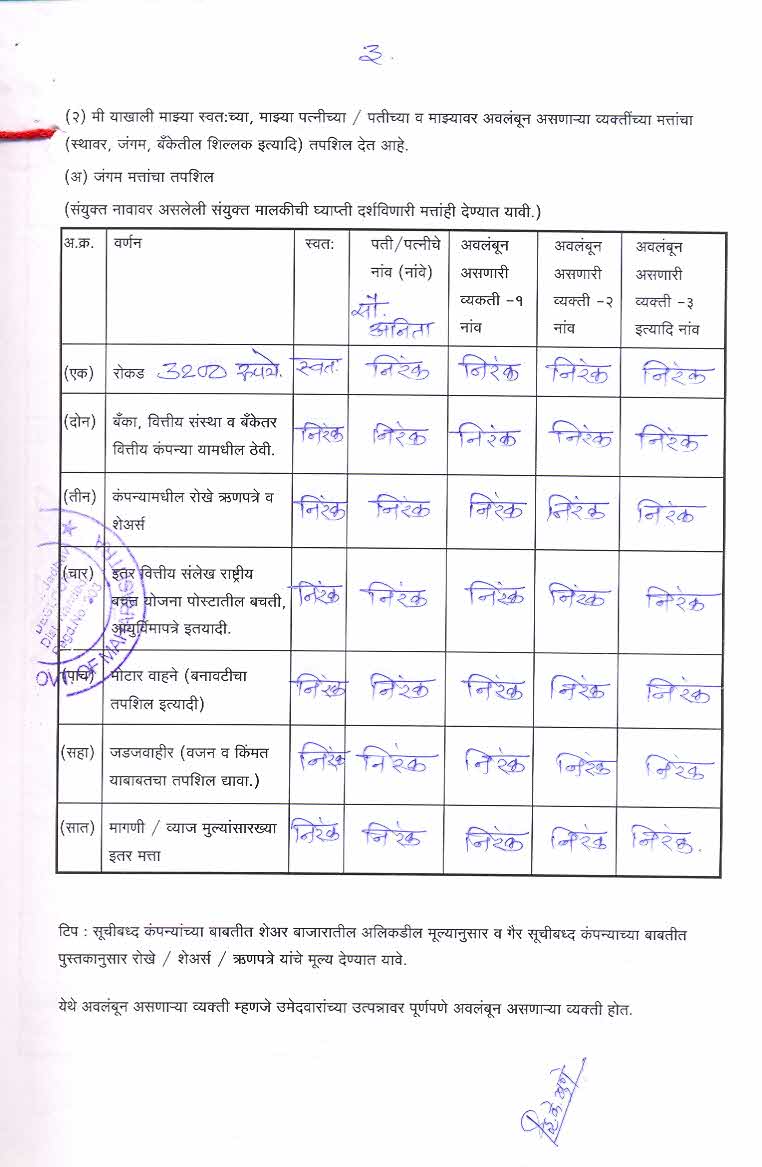 ३.
(२) मी याखाली माझ्या स्वत:च्या, माझ्या पत्नीच्या / पतीच्या व माझ्यावर अवलंबून असणाऱ्या व्यक्तींच्या मत्तांचा
(स्थावर, जंगम, बँकेतील शिल्लक इत्यादि) तपशिल देत आहे.
(अ) जंगम मत्तांचा तपशिल
(संयुक्त नावावर असलेली संयुक्त मालकीची घ्याप्ती दर्शविणारी मत्तांही देण्यात यावी.)
अ.क्र. वर्णन स्वत: पती/पत्नीचे अवलंबून अवलंबून अवलंबून
नांव (नांवे) असणारी असणारी असणारी
व्यकती -१ व्यक्ती -२ व्यक्ती -३
सौ. अनिता नांव नांव इत्यादि नांव
(एक) रोकड 3200 रूपये. स्वतः निरंक निरंक निरंक निरंक
(दोन) बँका, वित्तीय संस्था व बँकेतर निरंक निरंक निरंक निरंक निरंक
वित्तीय कंपन्या यामधील ठेवी.
(तीन) कंपन्यामधील रोखे ऋणपत्रे व निरंक निरंक निरंक निरंक निरंक
शेअर्स
(चार) इतर वित्तीय संलेख राष्ट्रीय निरंक निरंक निरंक निरंक निरंक
बचत योजना पोस्टातील बचती,
आयुर्विमापत्रे इतयादी.
(पाच) मोटार वाहने (बनावटीचा निरंक निरंक निरंक निरंक निरंक
तपशिल इत्यादी)
(सहा) जडजवाहीर (वजन व किंमत निरंक निरंक निरंक निरंक निरंक
याबाबतचा तपशिल द्यावा.)
(सात) मागणी / व्याज मुल्यांसारख्या निरंक निरंक निरंक निरंक निरंक.
इतर मत्ता
टिप : सूचीबध्द कंपन्यांच्या बाबतीत शेअर बाजारातील अलिकडील मूल्यानुसार व गैर सूचीबध्द कंपन्याच्या बाबतीत
पुस्तकानुसार रोखे / शेअर्स / ऋणपत्रे यांचे मूल्य देण्यात यावे.
येथे अवलंबून असणाऱ्या व्यक्ती म्हणजे उमेदवारांच्या उत्पन्नावर पूर्णपणे अवलंबून असणाऱ्या व्यक्ती होत.